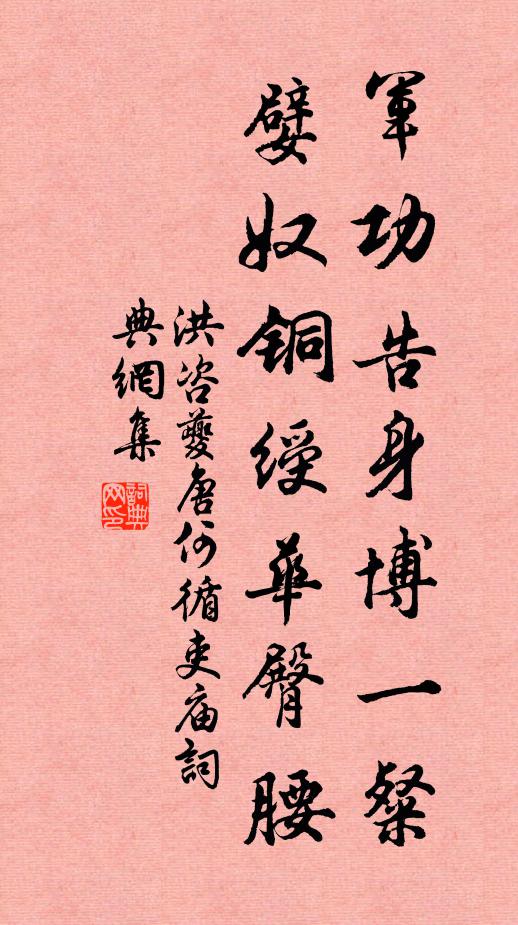 軍功告身博一粲
嬖奴銅綬華臀腰
洪咨夔唐何循吏庙詞
典網集
詞典
网印